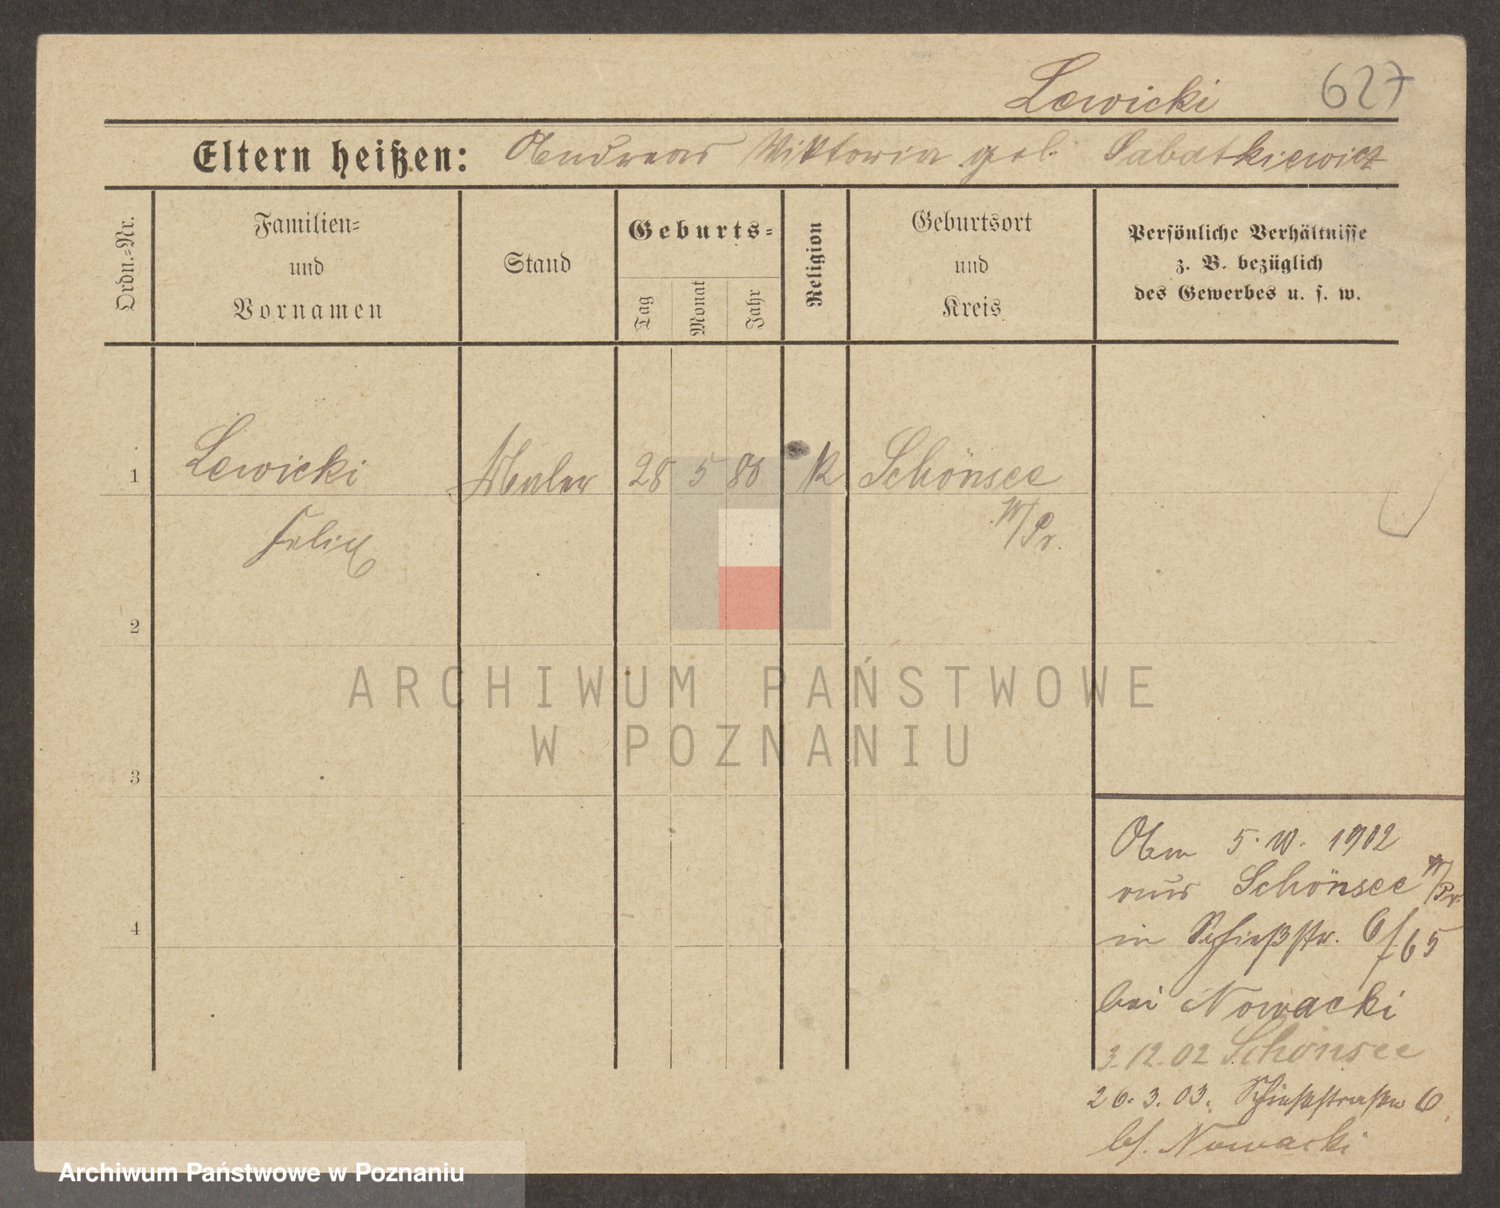 Lewicki 627
Eltern heißen: Andreas Viktoria geb. Sabatkiewicz
Ordn.-Nr.
Familien-
und
Vornamen
Stand
Geburts-
Tag
Monat
Jahr
Religion
Geburtsort
und
Kreis
Persönliche Verhältnisse
z. B. bezüglich
des Gewerbes u. s. w.
1 Lewicki Maler 28 5 80 K Schönsee
Felix W/Pr.
2
3
4
Am 5. 10. 1902
aus Schönsee W/Pr.
in Schießstr. 6/65
bei Nowacki
3.12.02 Schönsee
26.3.03. Schießstraße 6
bf. Nowacki
ARCHIWUM PAŃSTWOWE
W POZNANIU
Archiwum Państwowe w Poznaniu